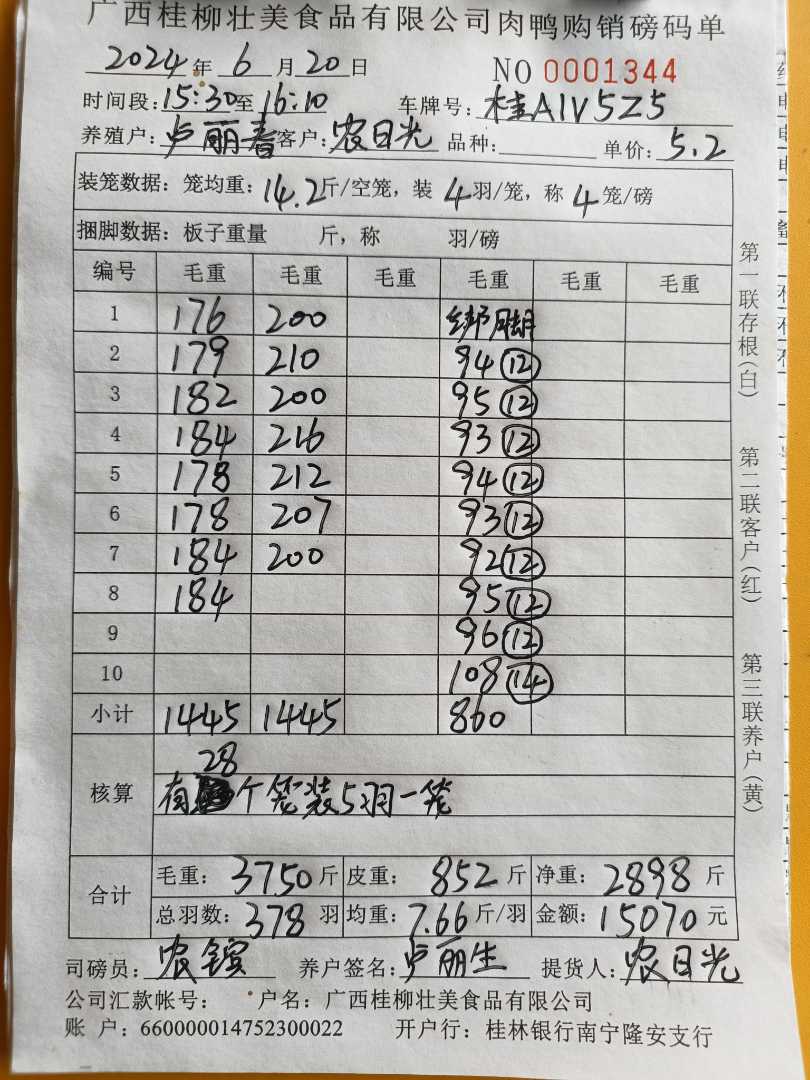 广西桂柳壮美食品有限公司肉鸭购销磅码单
2024年 6月20日 NO 0001344
时间段:15:30至16:10 车牌号:桂A1V5Z5
养殖户:卢丽春 客户:农日光 品种: 单价:5.2
装笼数据:笼均重:14.2斤/空笼,装4羽/笼,称4笼/磅
捆脚数据:板子重量 斤,称 羽/磅
编号 毛重 毛重 毛重 毛重 毛重 毛重
1 176 200 绑脚
2 179 210 94 ⑫
3 182 200 95 ⑫
4 184 216 93 ⑫
5 178 212 94 ⑫
6 178 207 93 ⑫
7 184 200 92 ⑫
8 184 95 ⑫
9 96 ⑫
10 108 ⑭
小计 1445 1445 860
核算
28
有 个笼装5羽一笼
合计
毛重:3750斤 皮重:852斤 净重:2898斤
总羽数:378羽 均重:7.66斤/羽 金额:15070元
司磅员:农镔 养户签名:卢丽生 提货人:农日光
公司汇款帐号: 户名:广西桂柳壮美食品有限公司
账 户:660000014752300022 开户行:桂林银行南宁隆安支行
第一联存根(白) 第二联客户(红) 第三联养户(黄)